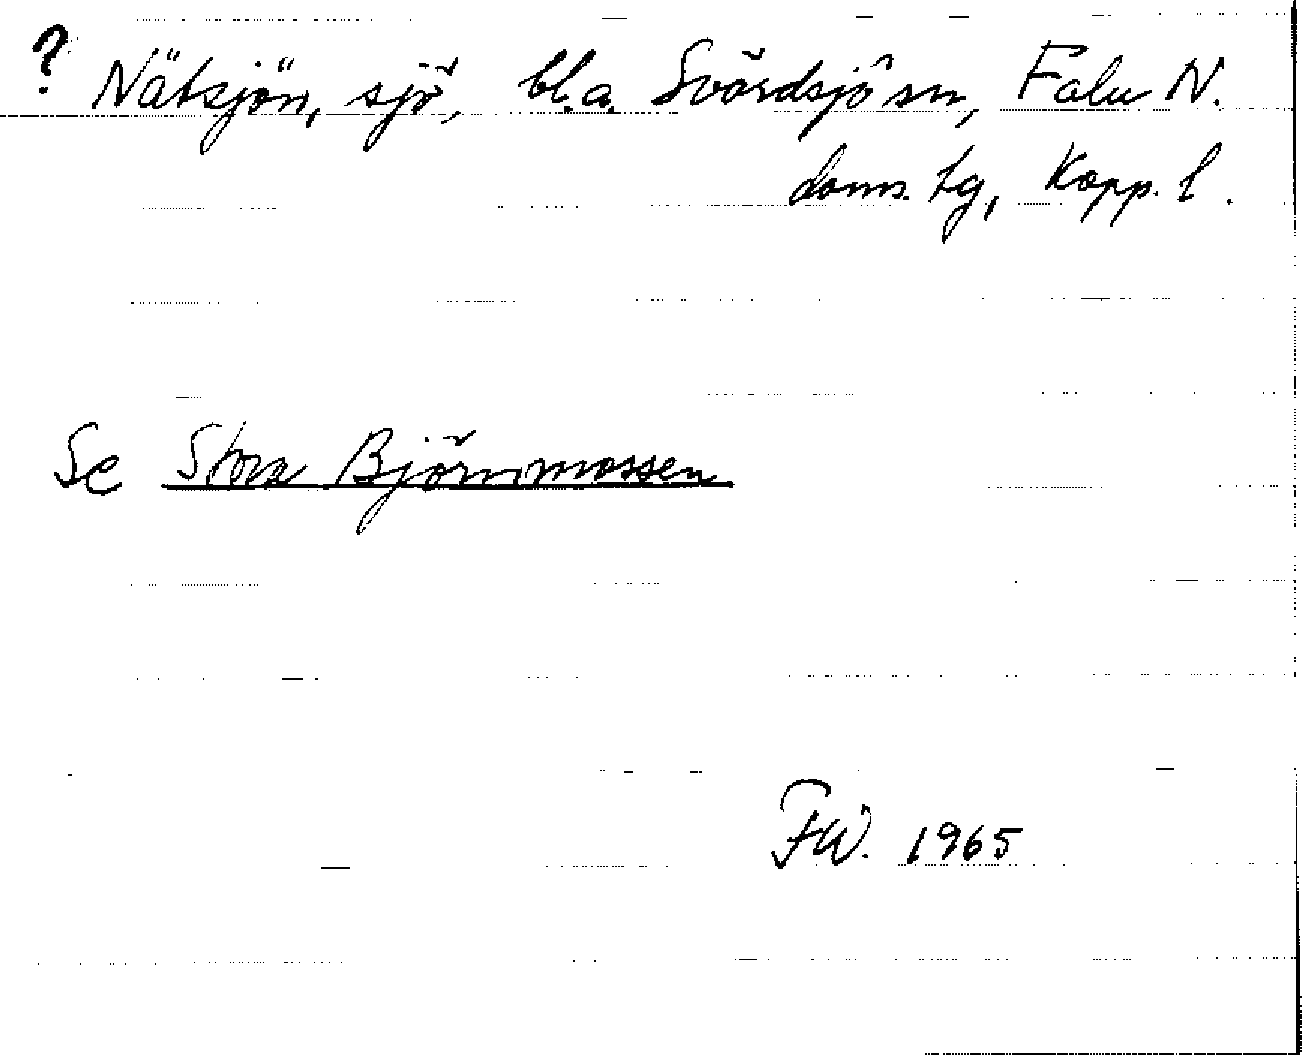 ? Nätsjön, sjö, bl.a. Svärdsjö sn, Falu N.
doms. tg, Kopp. l.
Se Stora Björnmossen
FW. 1965